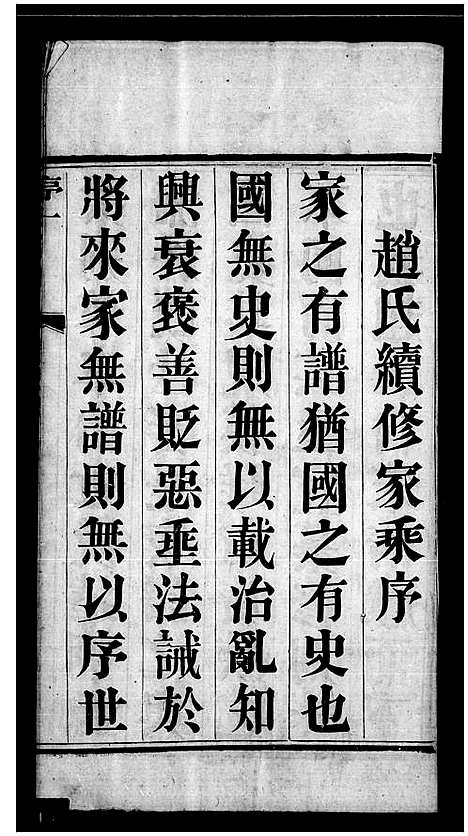 趙氏續修家乘序
家之有譜猶國之有史也
國無史則無以載治亂知
興衰褒善貶惡垂法誡於
將來家無譜則無以序世
序一